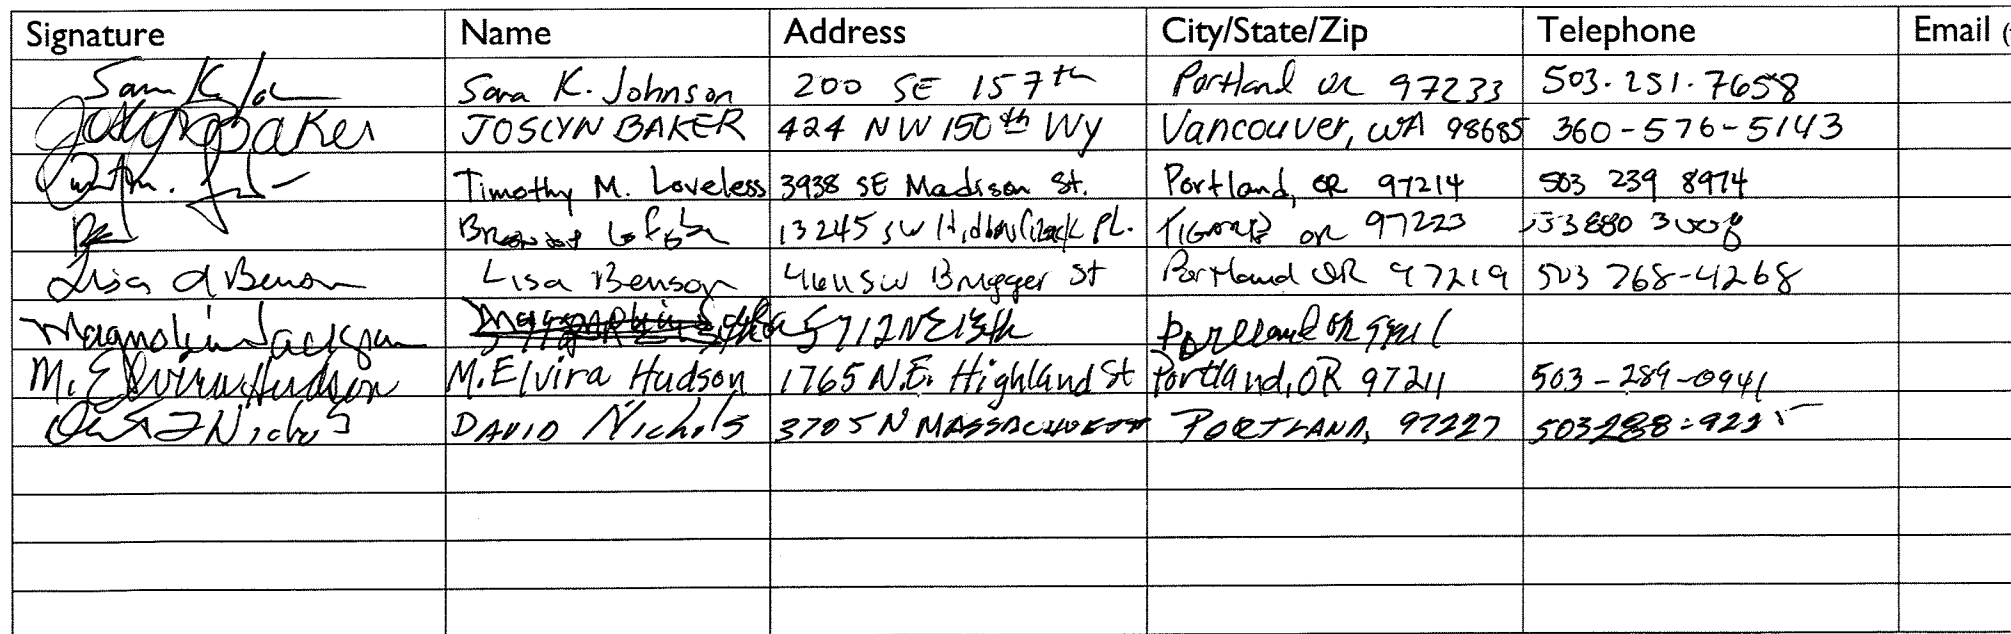 Signature Name Address City/State/Zip Telephone Email
Sara K. Jo Sara K. Johnson 200 SE 157th Portland OR 97233 503.251.7658
Joslyn Baker JOSLYN BAKER 424 NW 150th Wy Vancouver, WA 98685 360-576-5143
Timothy M. Loveless 3938 SE Madison St. Portland, OR 97214 503 239 8974
13245 SW Pl. TIGARD OR 97223
Lisa A Benson Lisa Benson 4611 SW Brugger St Portland OR 97219 503 768-4268
Magnolia Jackson 5712 NE 13th Portland OR
M. Elvira Hudson M. Elvira Hudson 1765 N.E. Highland St Portland, OR 97211 503-289-0941
Nichols DAVID Nichols 3705 N MASSACHUSETTS PORTLAND, 97227